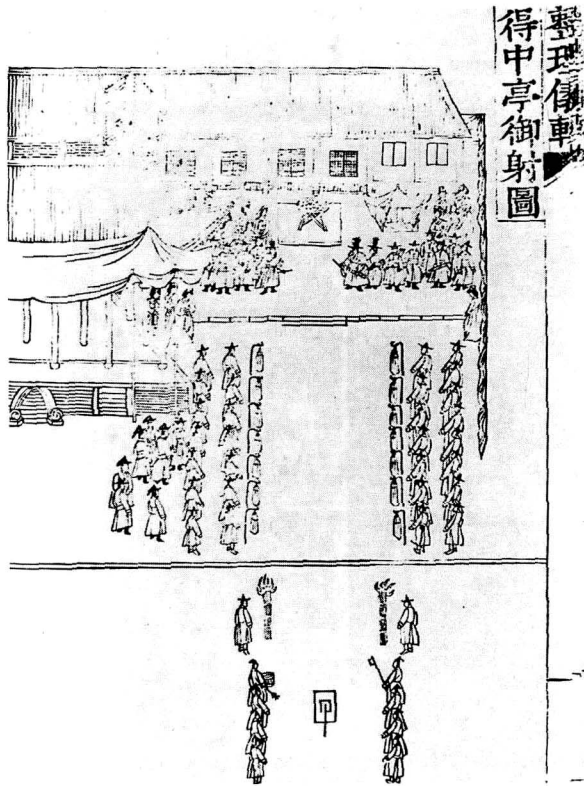 整理儀軌
得中亭御射圖